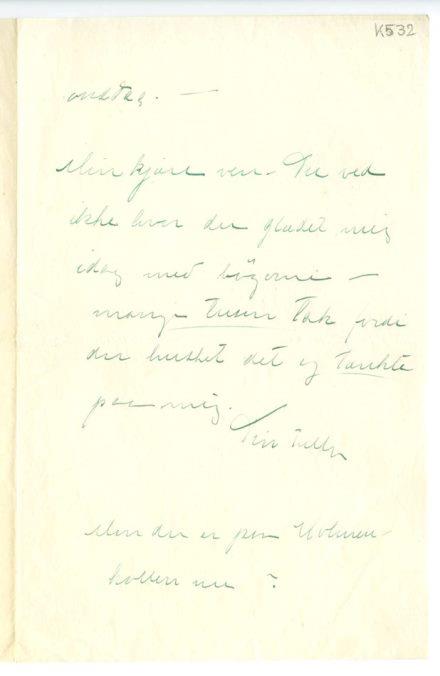 K532
onsdag. —
Min kjære ven. Du ved
ikke hvor du glædet mig
idag med bøgerne —
mange tusen tak fordi
du husket det og tænkte
paa mig.
Din Tully
Men du er paa Holmen-
kollen nu ?